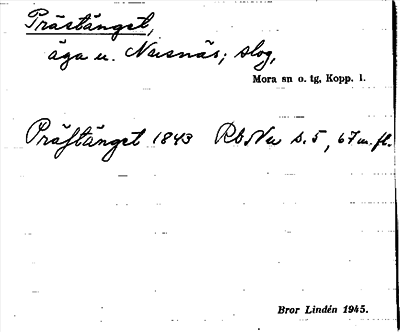 Prästängst,
äga u. Nusnäs; slog,
Mora sn o. tg, Kopp. l.
Präſtängst 1843 RbNu s. 5, 67 m. fl.
Bror Lindén 1945.